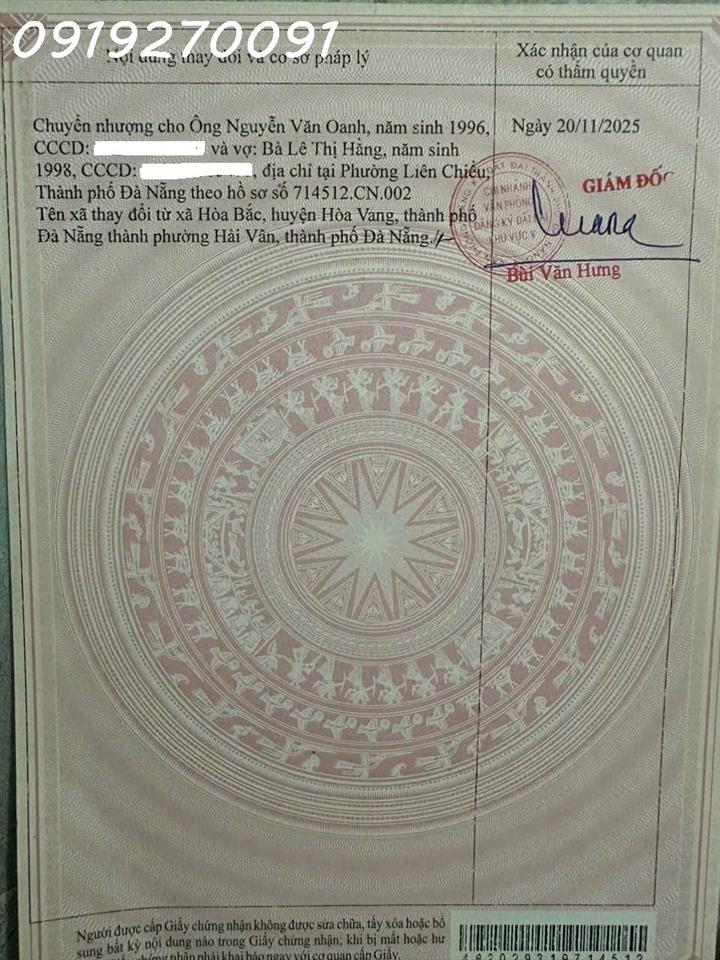 0919270091
Nội dung thay đổi và cơ sở pháp lý
Xác nhận của cơ quan
có thẩm quyền
Chuyển nhượng cho Ông Nguyễn Văn Oanh, năm sinh 1996,
CCCD: và vợ: Bà Lê Thị Hằng, năm sinh
1998, CCCD: , địa chỉ tại Phường Liên Chiểu,
Thành phố Đà Nẵng theo hồ sơ số 714512.CN.002
Tên xã thay đổi từ xã Hòa Bắc, huyện Hòa Vang, thành phố
Đà Nẵng thành phường Hải Vân, thành phố Đà Nẵng./.
Ngày 20/11/2025
GIÁM ĐỐC
CHI NHÁNH
VĂN PHÒNG
ĐĂNG KÝ ĐẤT ĐAI
KHU VỰC V
Bùi Văn Hưng
Người được cấp Giấy chứng nhận không được sửa chữa, tẩy xóa hoặc bổ
sung bất kỳ nội dung nào trong Giấy chứng nhận; khi bị mất hoặc hư
chứng nhận phải khai báo ngay với cơ quan cấp Giấy.
482029319714512